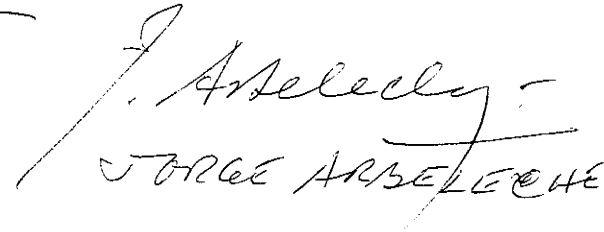 J. Arbeleche
JORGE ARBELECHE